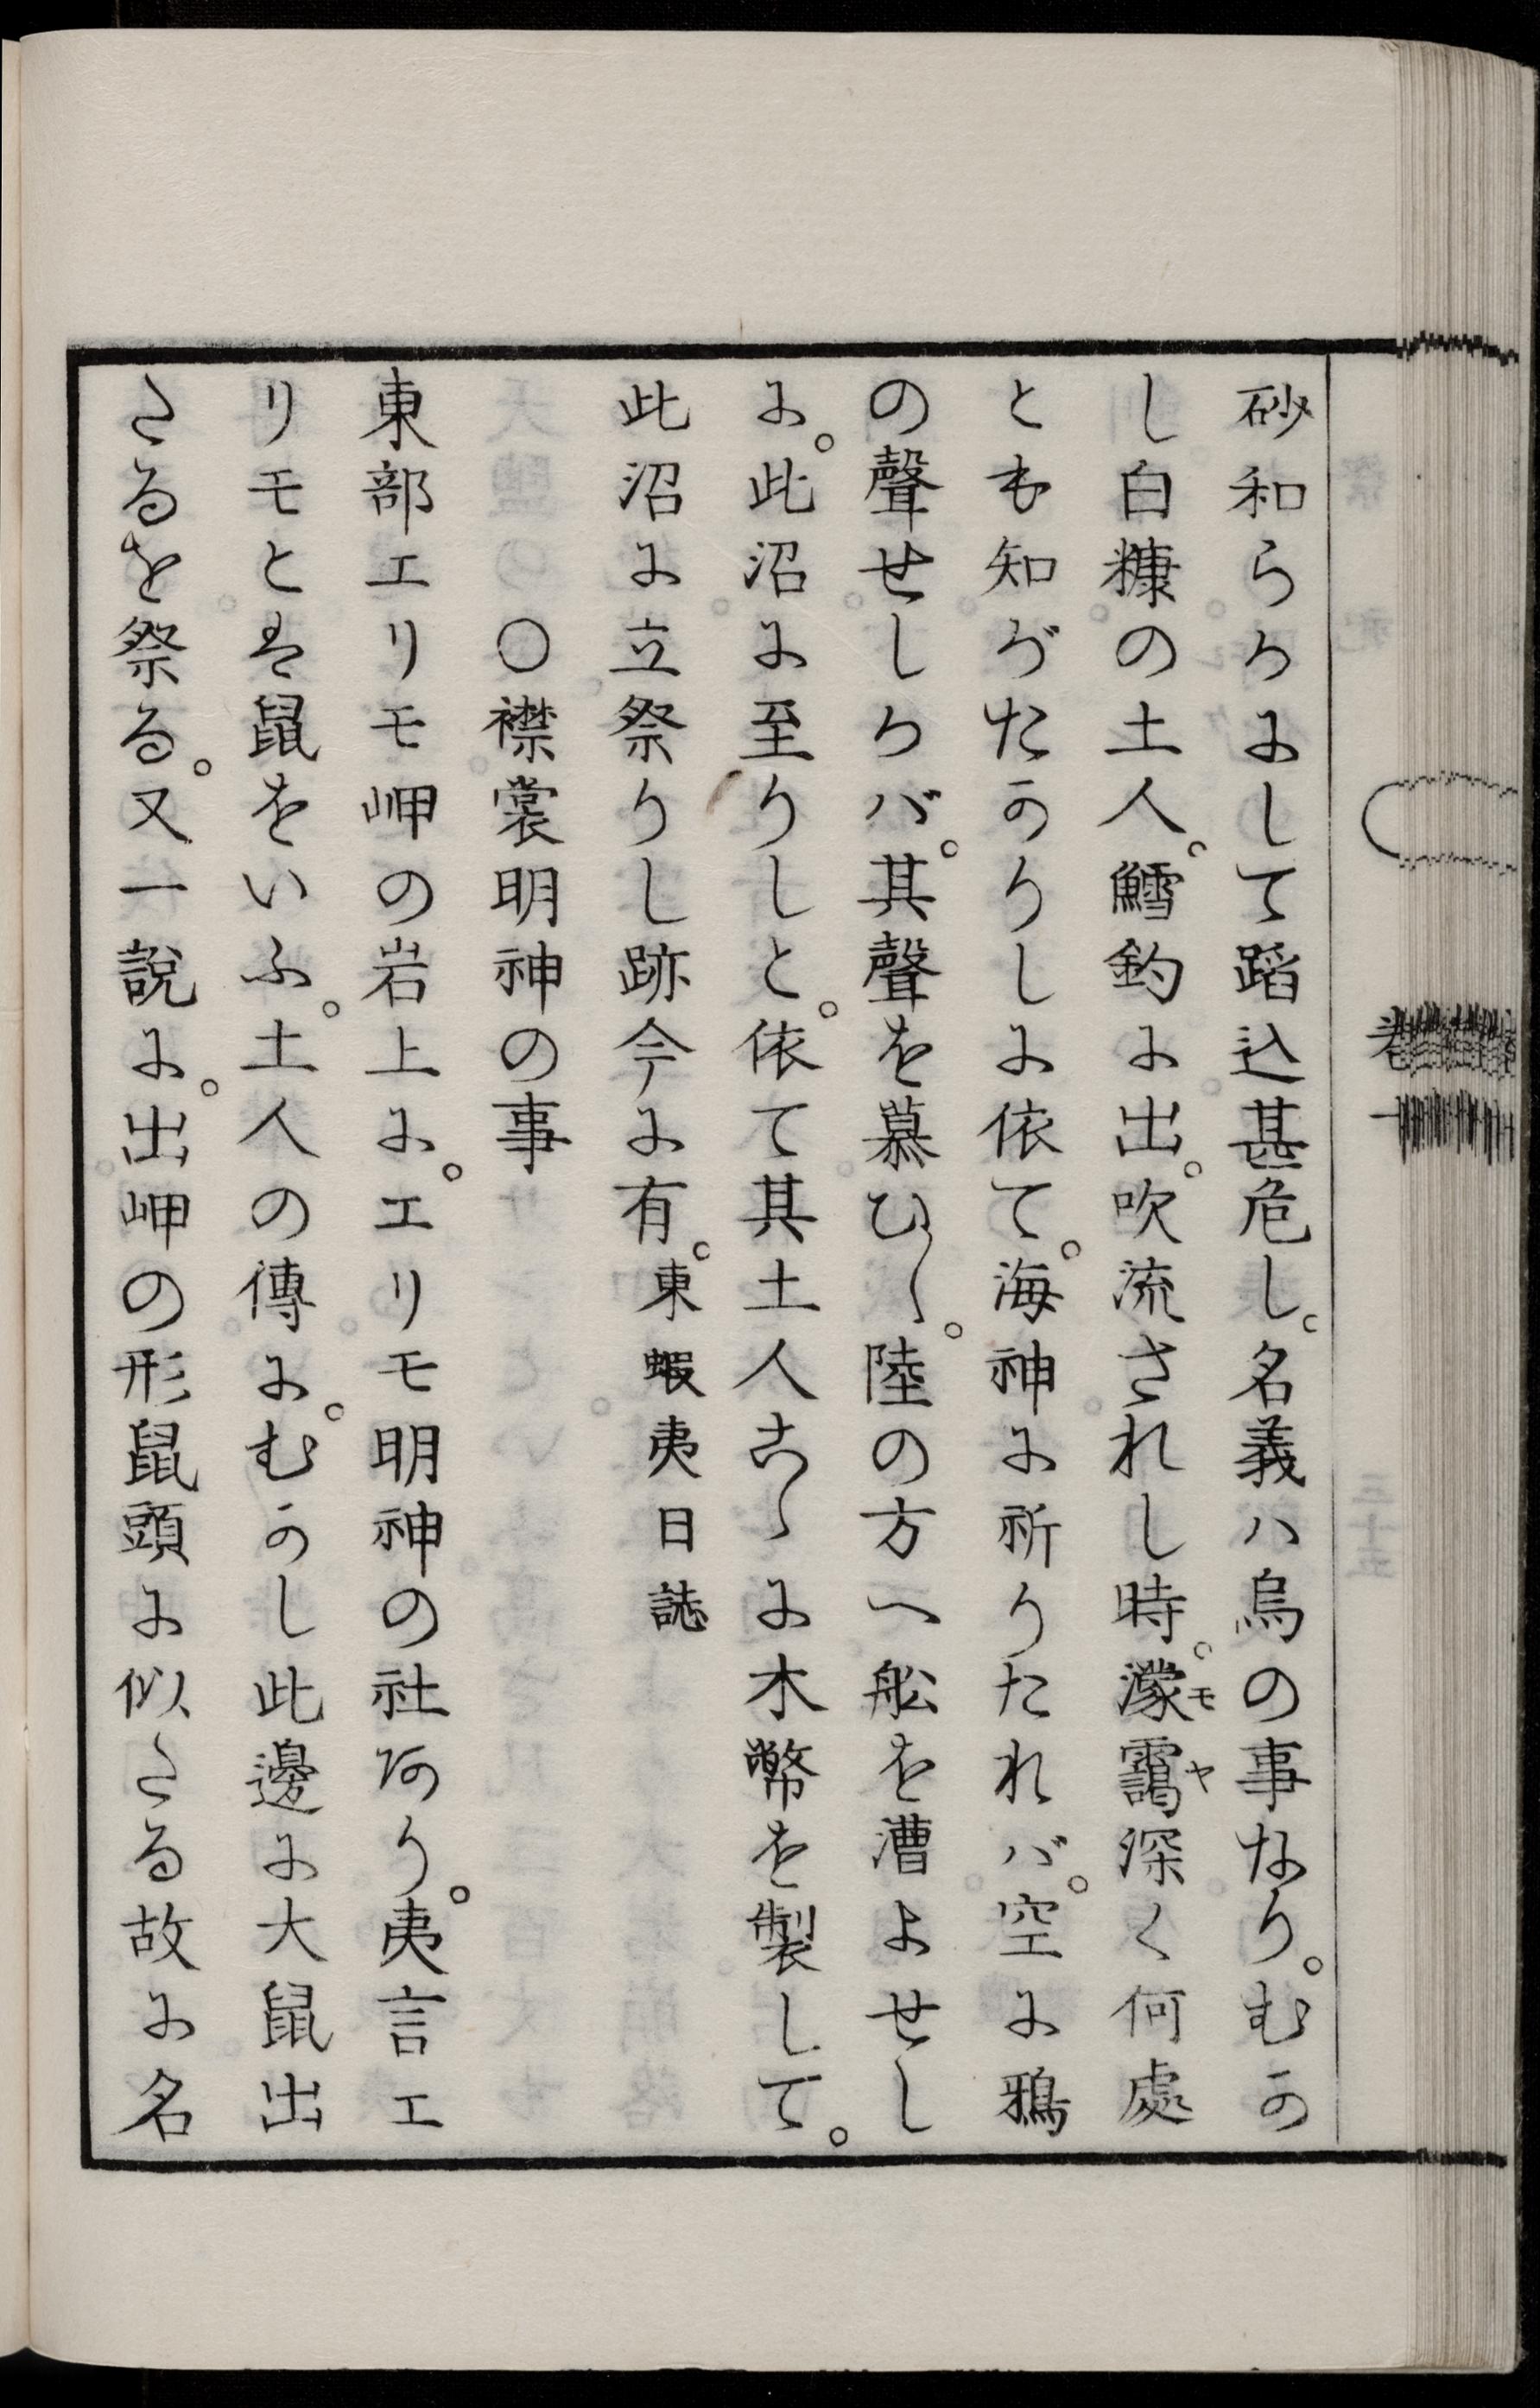 砂和らかにして蹈込甚危し。名義ハ烏の事なり。むか
し白糠の土人。鱈釣に出。吹流されし時。濛靄深く何處
モヤ
とも知がたかりしに依て。海神に祈りたれバ。空に鴉
の聲せしかバ。其聲を慕ひ〱。陸の方へ舩を漕よせし
に。此沼に至りしと。依て其土人こゝに木幣を製して。
此沼に立祭りし跡今に有。東蝦夷日誌
〇襟裳明神の事
東部エリモ岬の岩上に。エリモ明神の社あり。夷言エ
リモとは鼠をいふ。土人の傳に。むかし此邊に大鼠出
たるを祭る。又一說に。出岬の形鼠頭に似たる故に名
卷十